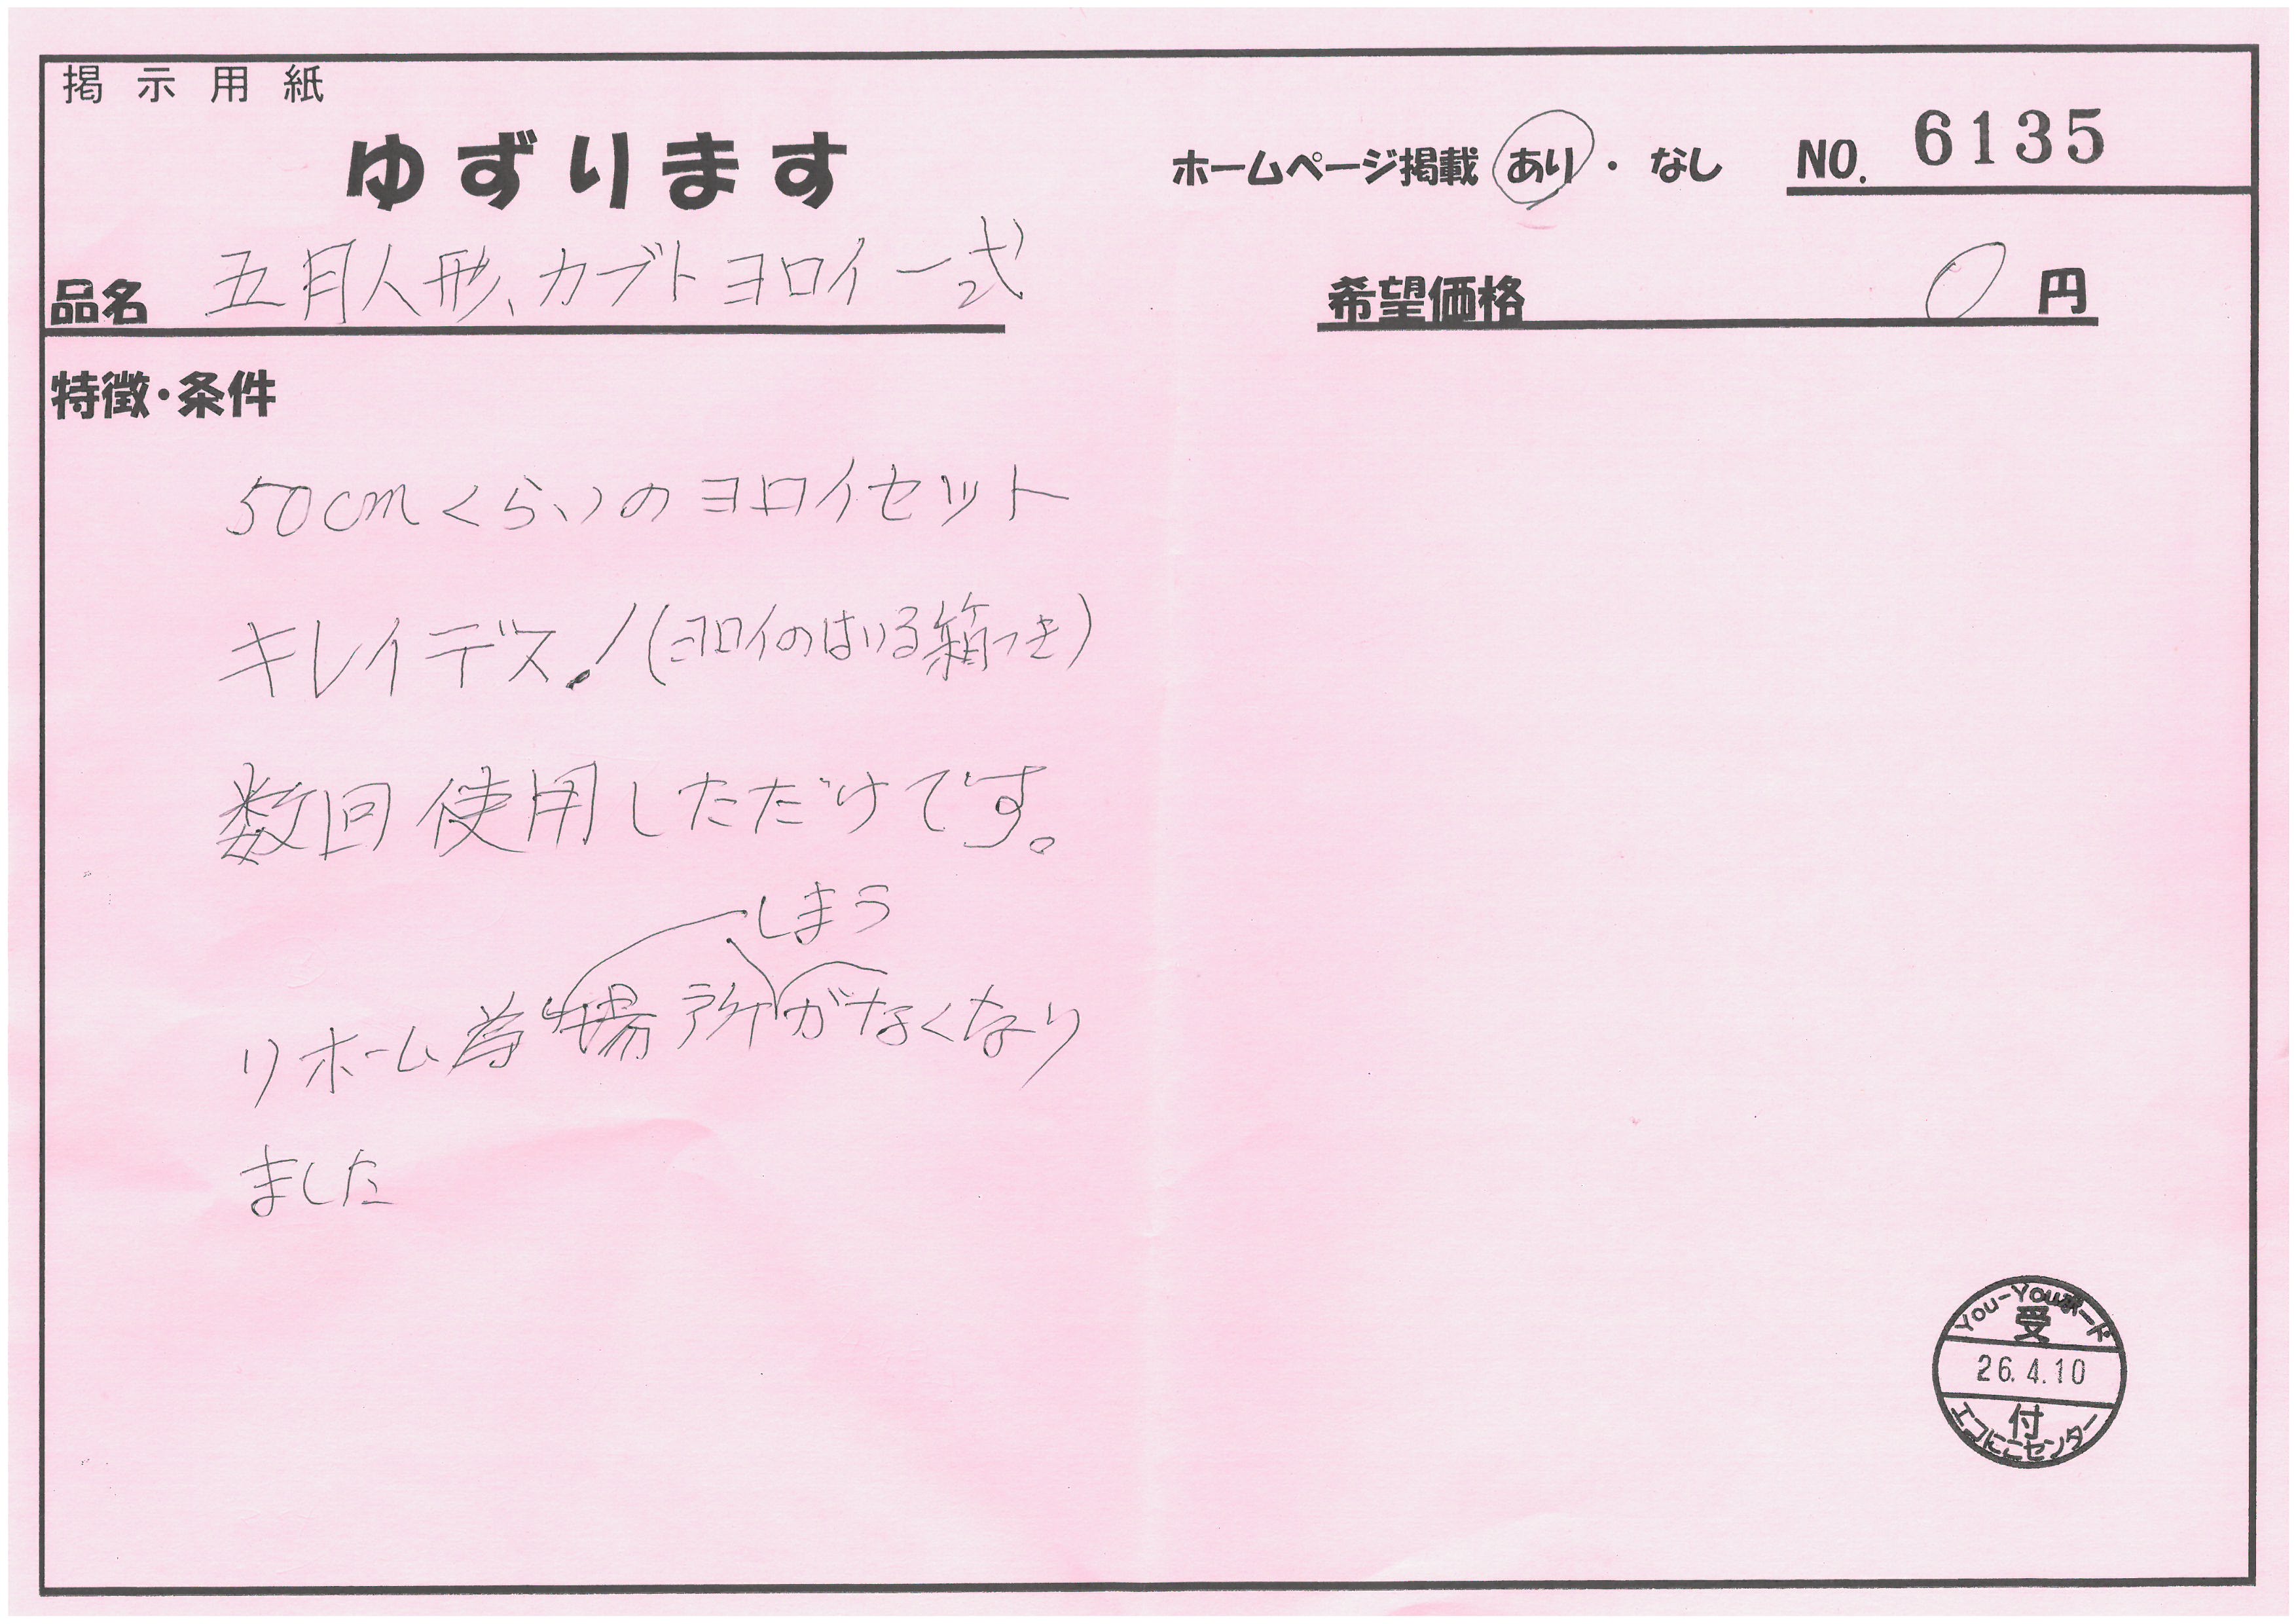 掲示用紙
ゆずります
ホームページ掲載 あり・なし NO. 6135
品名 五月人形、カブトヨロイ一式
希望価格 0円
特徴・条件
50cmくらいのヨロイセット
キレイデス!(ヨロイのはいる箱つき)
数回使用しただけです。
しまう
リホーム為場所がなくなり
ました
You-Youボード
受
26.4.10
付
エコにこセンター